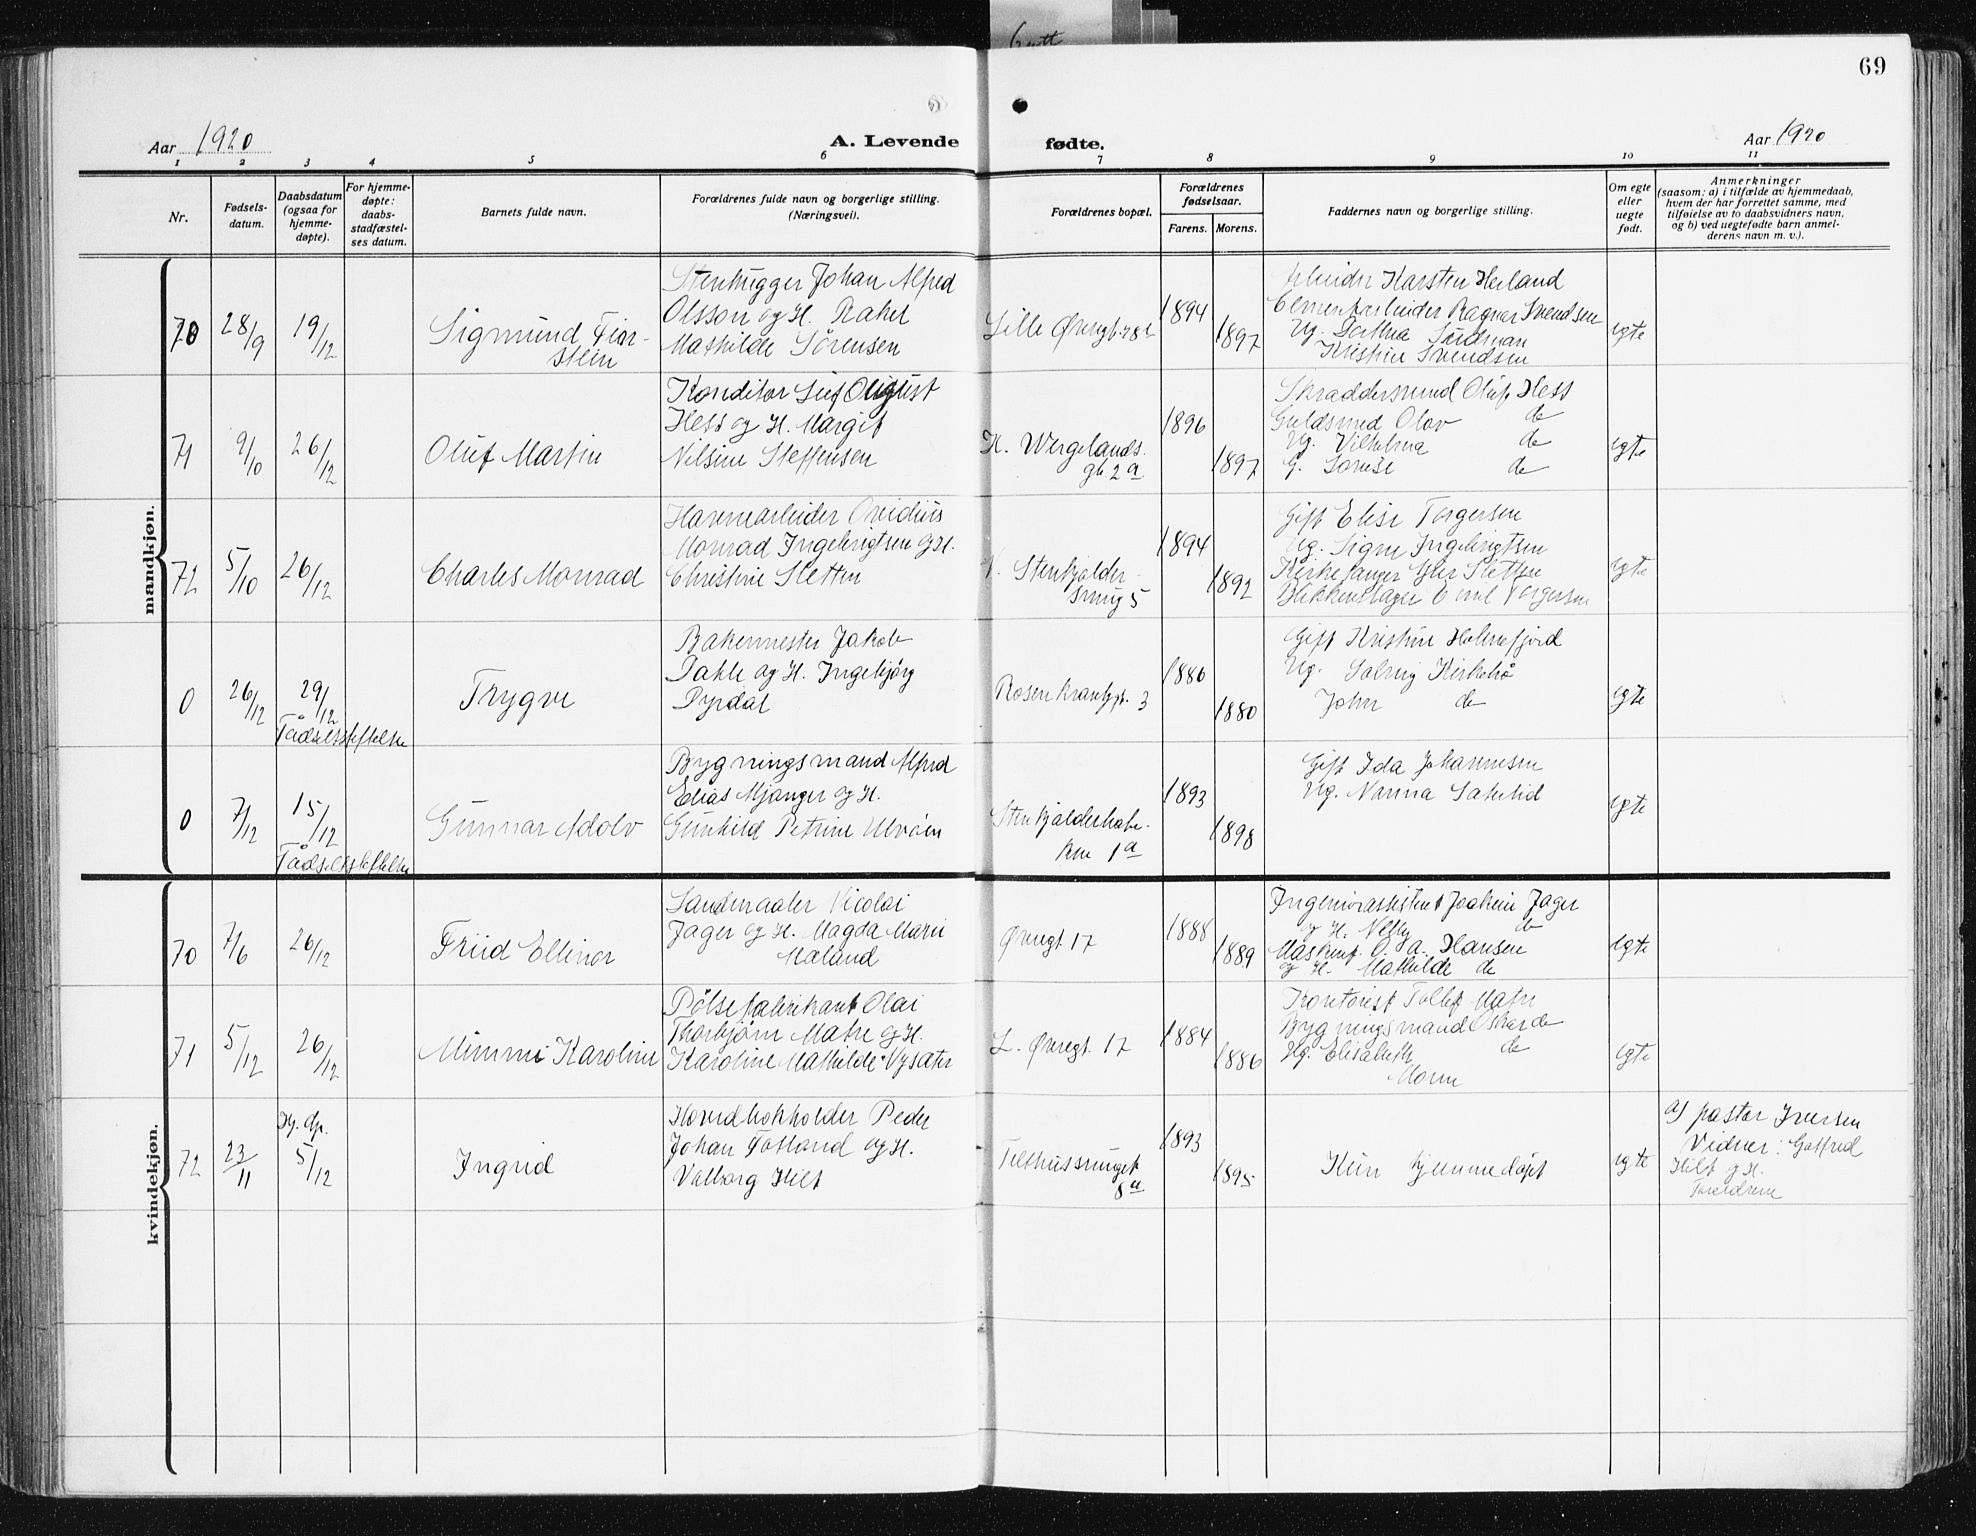 69
Aar 1920
A. Levende fødte.
Aar 1920
1 2 3 4 5 6 7 8 9 10 11
Nr.
Fødsels-
datum.
Daabsdatum
(ogsaa for
hjemme-
døpte).
For hjemme-
døpte:
daabs-
stadfæstel-
ses datum.
Barnets fulde navn.
Forældrenes fulde navn og borgerlige stilling.
(Næringsvei).
Forældrenes bopæl.
Forældrenes
fødselsaar.
Farens. Morens.
Faddernes navn og borgerlige stilling.
Om egte
eller
uegte
født.
Anmerkninger
(saasom: a) i tilfælde av hjemmedaab,
hvem der har forrettet samme, med
tilføielse av to daabsvidners navn,
og b) ved uegtefødte barn anmel-
derens navn m. v.).
mandkjøn.
70 28/9 19/12
Sigmund
stein
Stenhugger Johan Alfred
Olsson og H. Rakel
Mathilde Sørensen
Lille Øvregt.
1894
1897
Arbeider Karsten Heiland
Cementarbeider Ragnar Svendsen
Ug.
Kristine Svendsen
egte
71 9/10 26/12
Oluf Martin
Konditor Leif August
Hess og H. Margit
Nilsine Steffensen
H. Wergelands
gt. 2a
1896
1897
Skraddersvend Oluf Hess
Guldsmed Olav do
Ug. Vilhelmina do
G. Lovise do
egte
72 5/10 26/12
Charles Monrad
Havnearbeider Ovidius
Monrad Ingebrigtsen og H.
Christine Sletten
N. Stenkjelder-
smug 5
1894
1892
Gift Elise Torgersen
Ug. Signe Ingebrigtsen
Kirkesanger Sletten
Blikkenslager Emil Torgersen
egte
0 26/12 29/12
Fødselsstiftelse
Trygve
Bakermester Jakob
Dahle og H. Ingebjørg
Dyrdal
Rosenkrantzgt. 3
1886
1880
Gift Kristine Holmefjord
Ug. Solveig Kirkebø
John do
egte
0 7/12 15/12
Fødselsstiftelse
Gunnar Adolv
Bygningsmand Alfred
Elias Mjanger og H.
Gunhild Petrine Ulvøen
Stenkjelderbak-
ken 1a
1893
1898
Gift Ida Johannesen
Ug. Nanna Sætelid
egte
kvindekjøn.
70 7/6 26/12
Friid Ellinor
Landmaaler Nicolai
Jager og H. Magda Marie
Maland
Øvregt 17
1888
1889
Ingeniørassistent Joakim Jager
og H. Nelly do
Maskinf. O. A. Hansen
og H. Mathilde do
egte
71 5/12 26/12
Mimmi Karoline
Pølsefabrikant Olai
Thorbjørn Matre og H.
Karoline Mathilde Nysæter
L. Øvregt. 17
1884
1886
Kontorist Tollef Matre
Bygningsmand Oskar do
Ug. Elisabeth do
Moren
egte
72 23/11
Hj. dp.
5/12
Ingrid
Hovedbokholder Peder
Johan Totland og H.
Valborg Hilt
Tilthussmuget
8a
1893
1895
Kun hjemmedøpt
egte
a) pastor Iversen
Vidner: Gotfred
Hilt og H.
Foreldrene